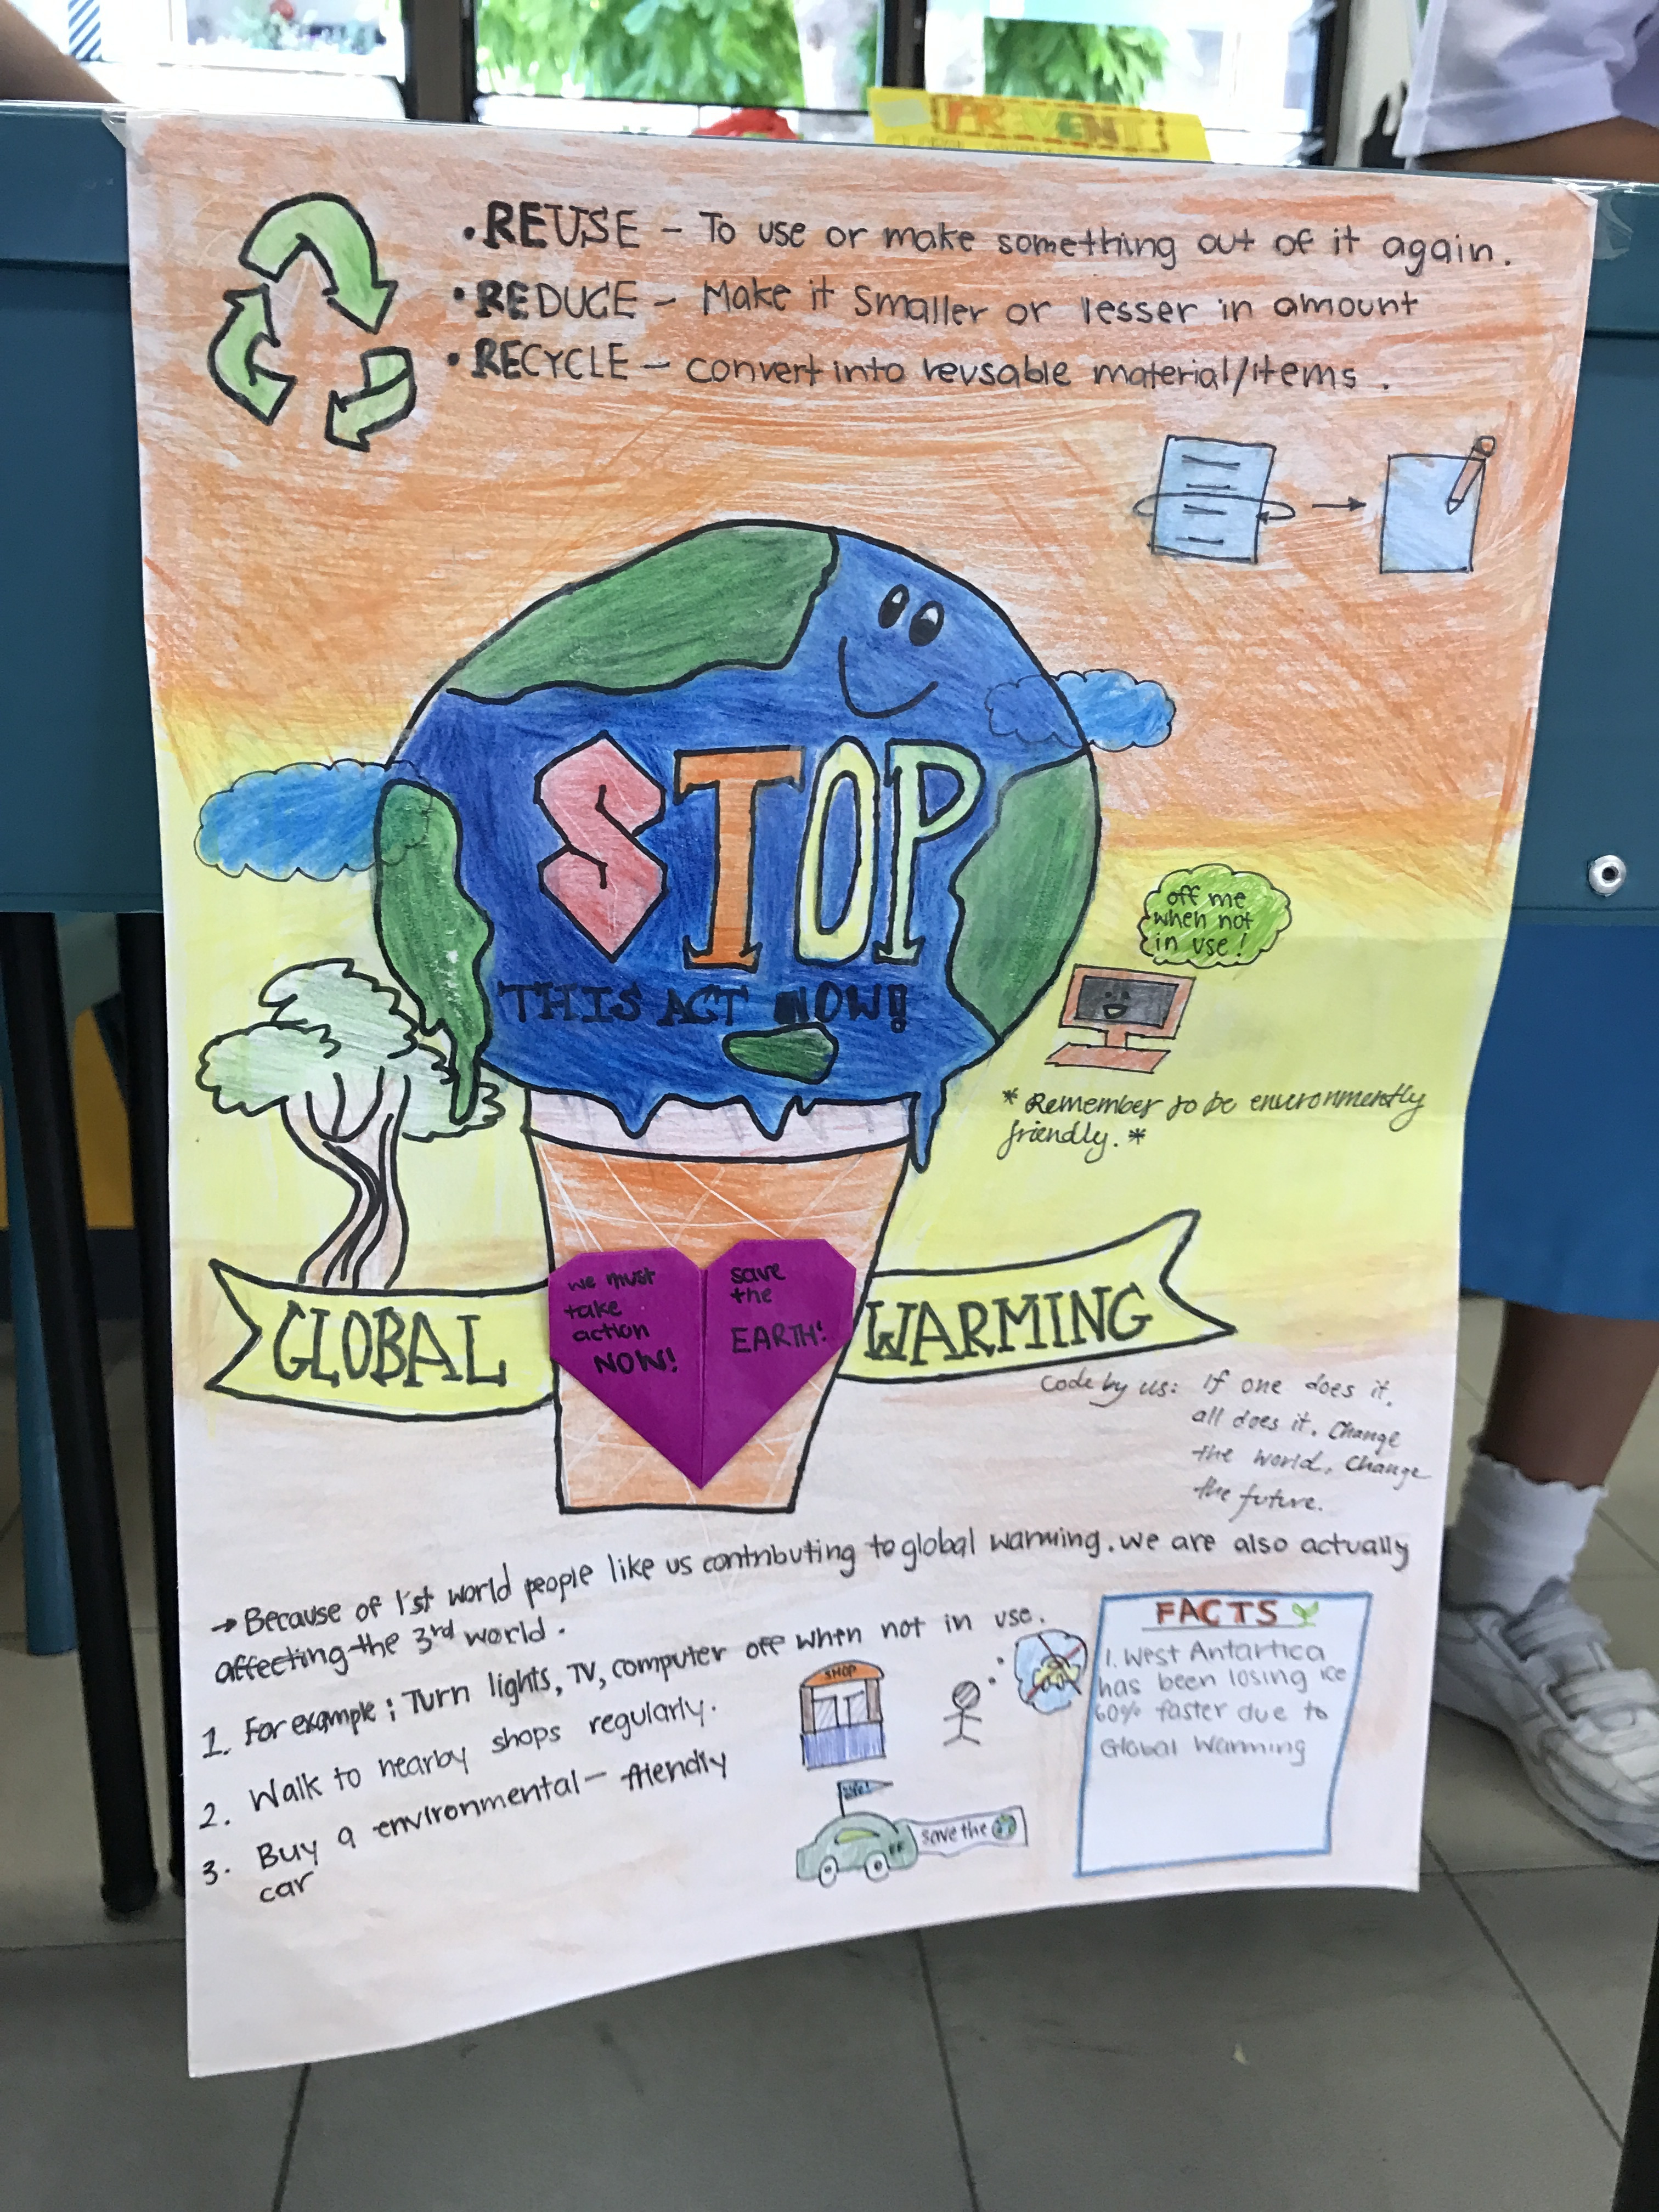 PREVENT
• REUSE – To use or make something out of it again.
• REDUCE – Make it smaller or lesser in amount
• RECYCLE – convert into reusable material/items.
STOP
THIS ACT NOW!!
off me
when not
in use!
* Remember to be environmently
friendly. *
GLOBAL
we must
take
action
NOW!
save
the
EARTH!
WARMING
Code by us: If one does it,
all does it. Change
the world. Change
the future.
→ Because of 1'st world people like us contributing to global warming. we are also actually
affecting the 3rd world.
1. For example; Turn lights, TV, computer off when not in use.
2. Walk to nearby shops regularly.
3. Buy a environmental-friendly
car
SHOP
save the
FACTS
1. West Antartica
has been losing ice
60% faster due to
Global Warming